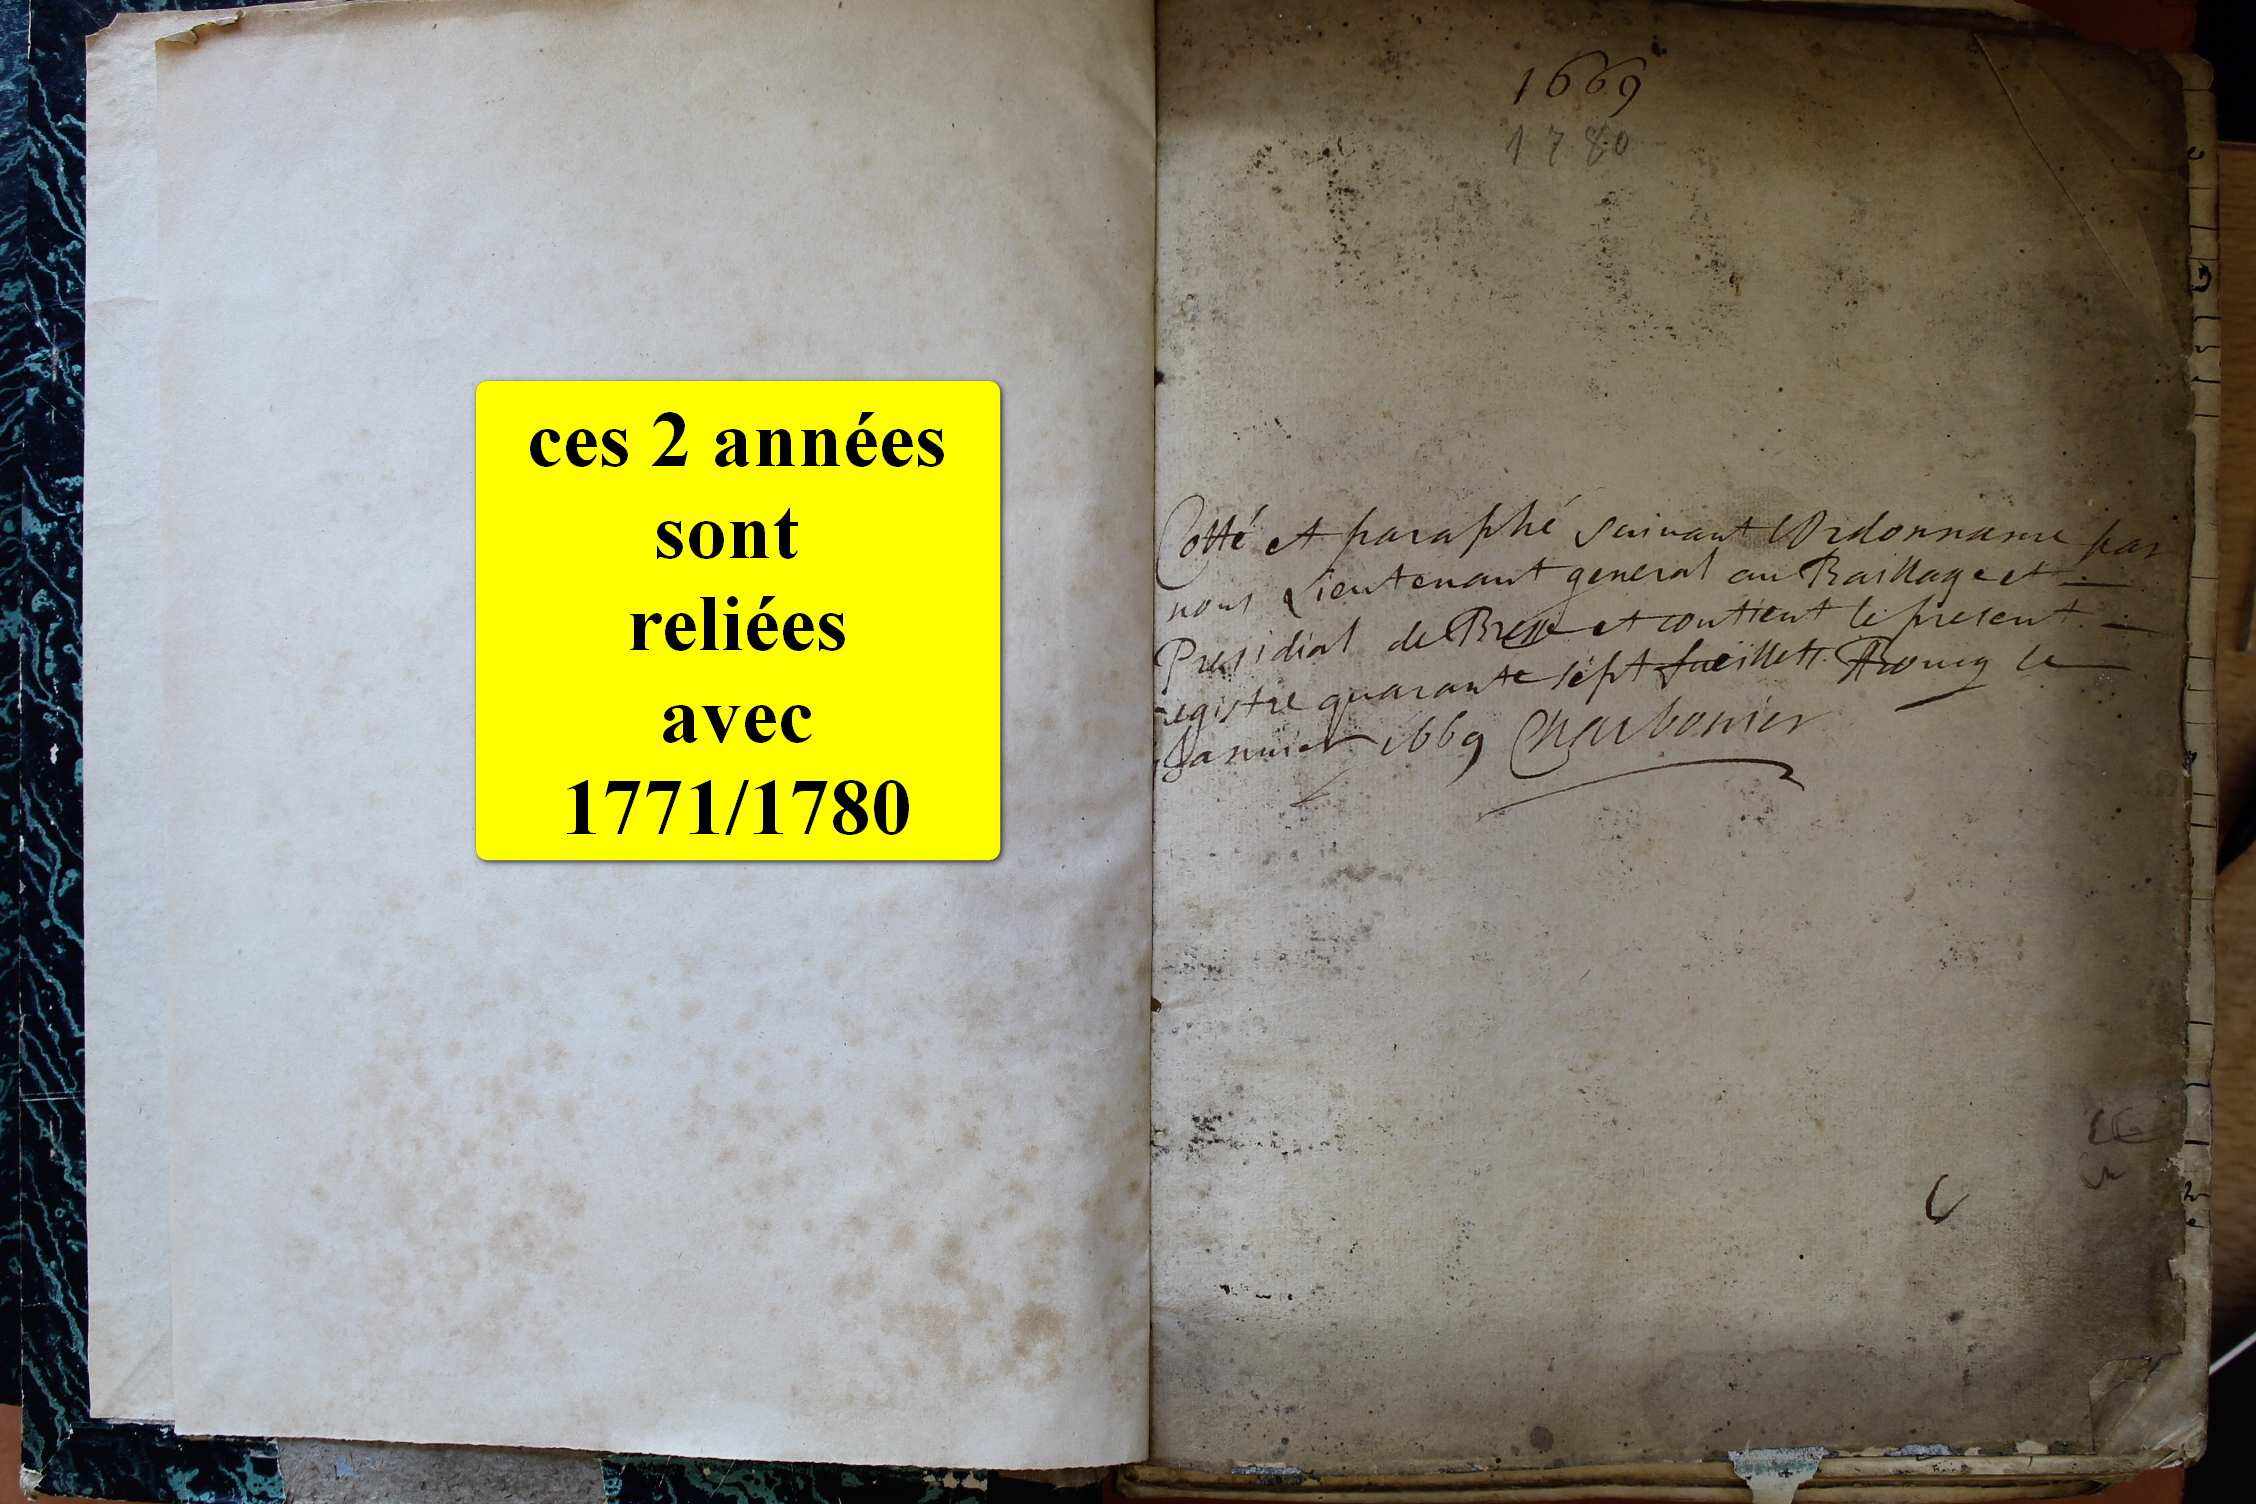 ces 2 années
sont
reliées
avec
1771/1780
1669
1780
Cotté et paraphé suivant l'Ordonnance par
nous Lieutenant general au Baillage et
Presidial de Bresse et contient le present
registre quarante sept fueillets Bourg le
Janvier 1669 Charbonier